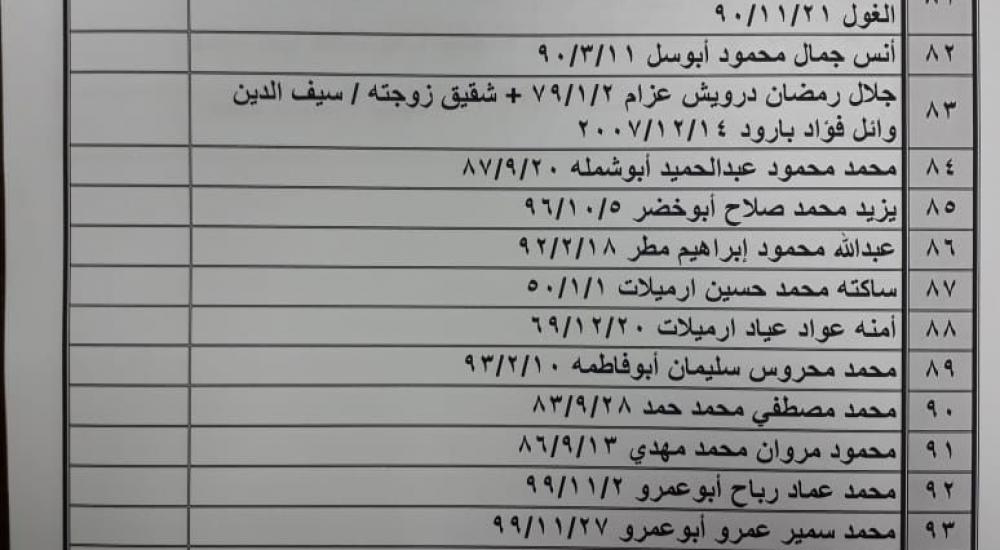 الغول ٩٠/١١/٢١
٨٢ أنس جمال محمود أبوسل ٩٠/٣/١١
٨٣ جلال رمضان درويش عزام ٧٩/١/٢ + شقيق زوجته / سيف الدين
وائل فؤاد بارود ٢٠٠٧/١٢/١٤
٨٤ محمد محمود عبدالحميد أبوشمله ٨٧/٩/٢٠
٨٥ يزيد محمد صلاح أبوخضر ٩٦/١٠/٥
٨٦ عبدالله محمود إبراهيم مطر ٩٢/٢/١٨
٨٧ ساكته محمد حسين ارميلات ٥٠/١/١
٨٨ أمنه عواد عياد ارميلات ٦٩/١٢/٢٠
٨٩ محمد محروس سليمان أبوفاطمه ٩٣/٢/١٠
٩٠ محمد مصطفي محمد حمد ٨٣/٩/٢٨
٩١ محمود مروان محمد مهدي ٨٦/٩/١٣
٩٢ محمد عماد رباح أبوعمرو ٩٩/١١/٢
٩٣ محمد سمير عمرو أبوعمرو ٩٩/١١/٢٧